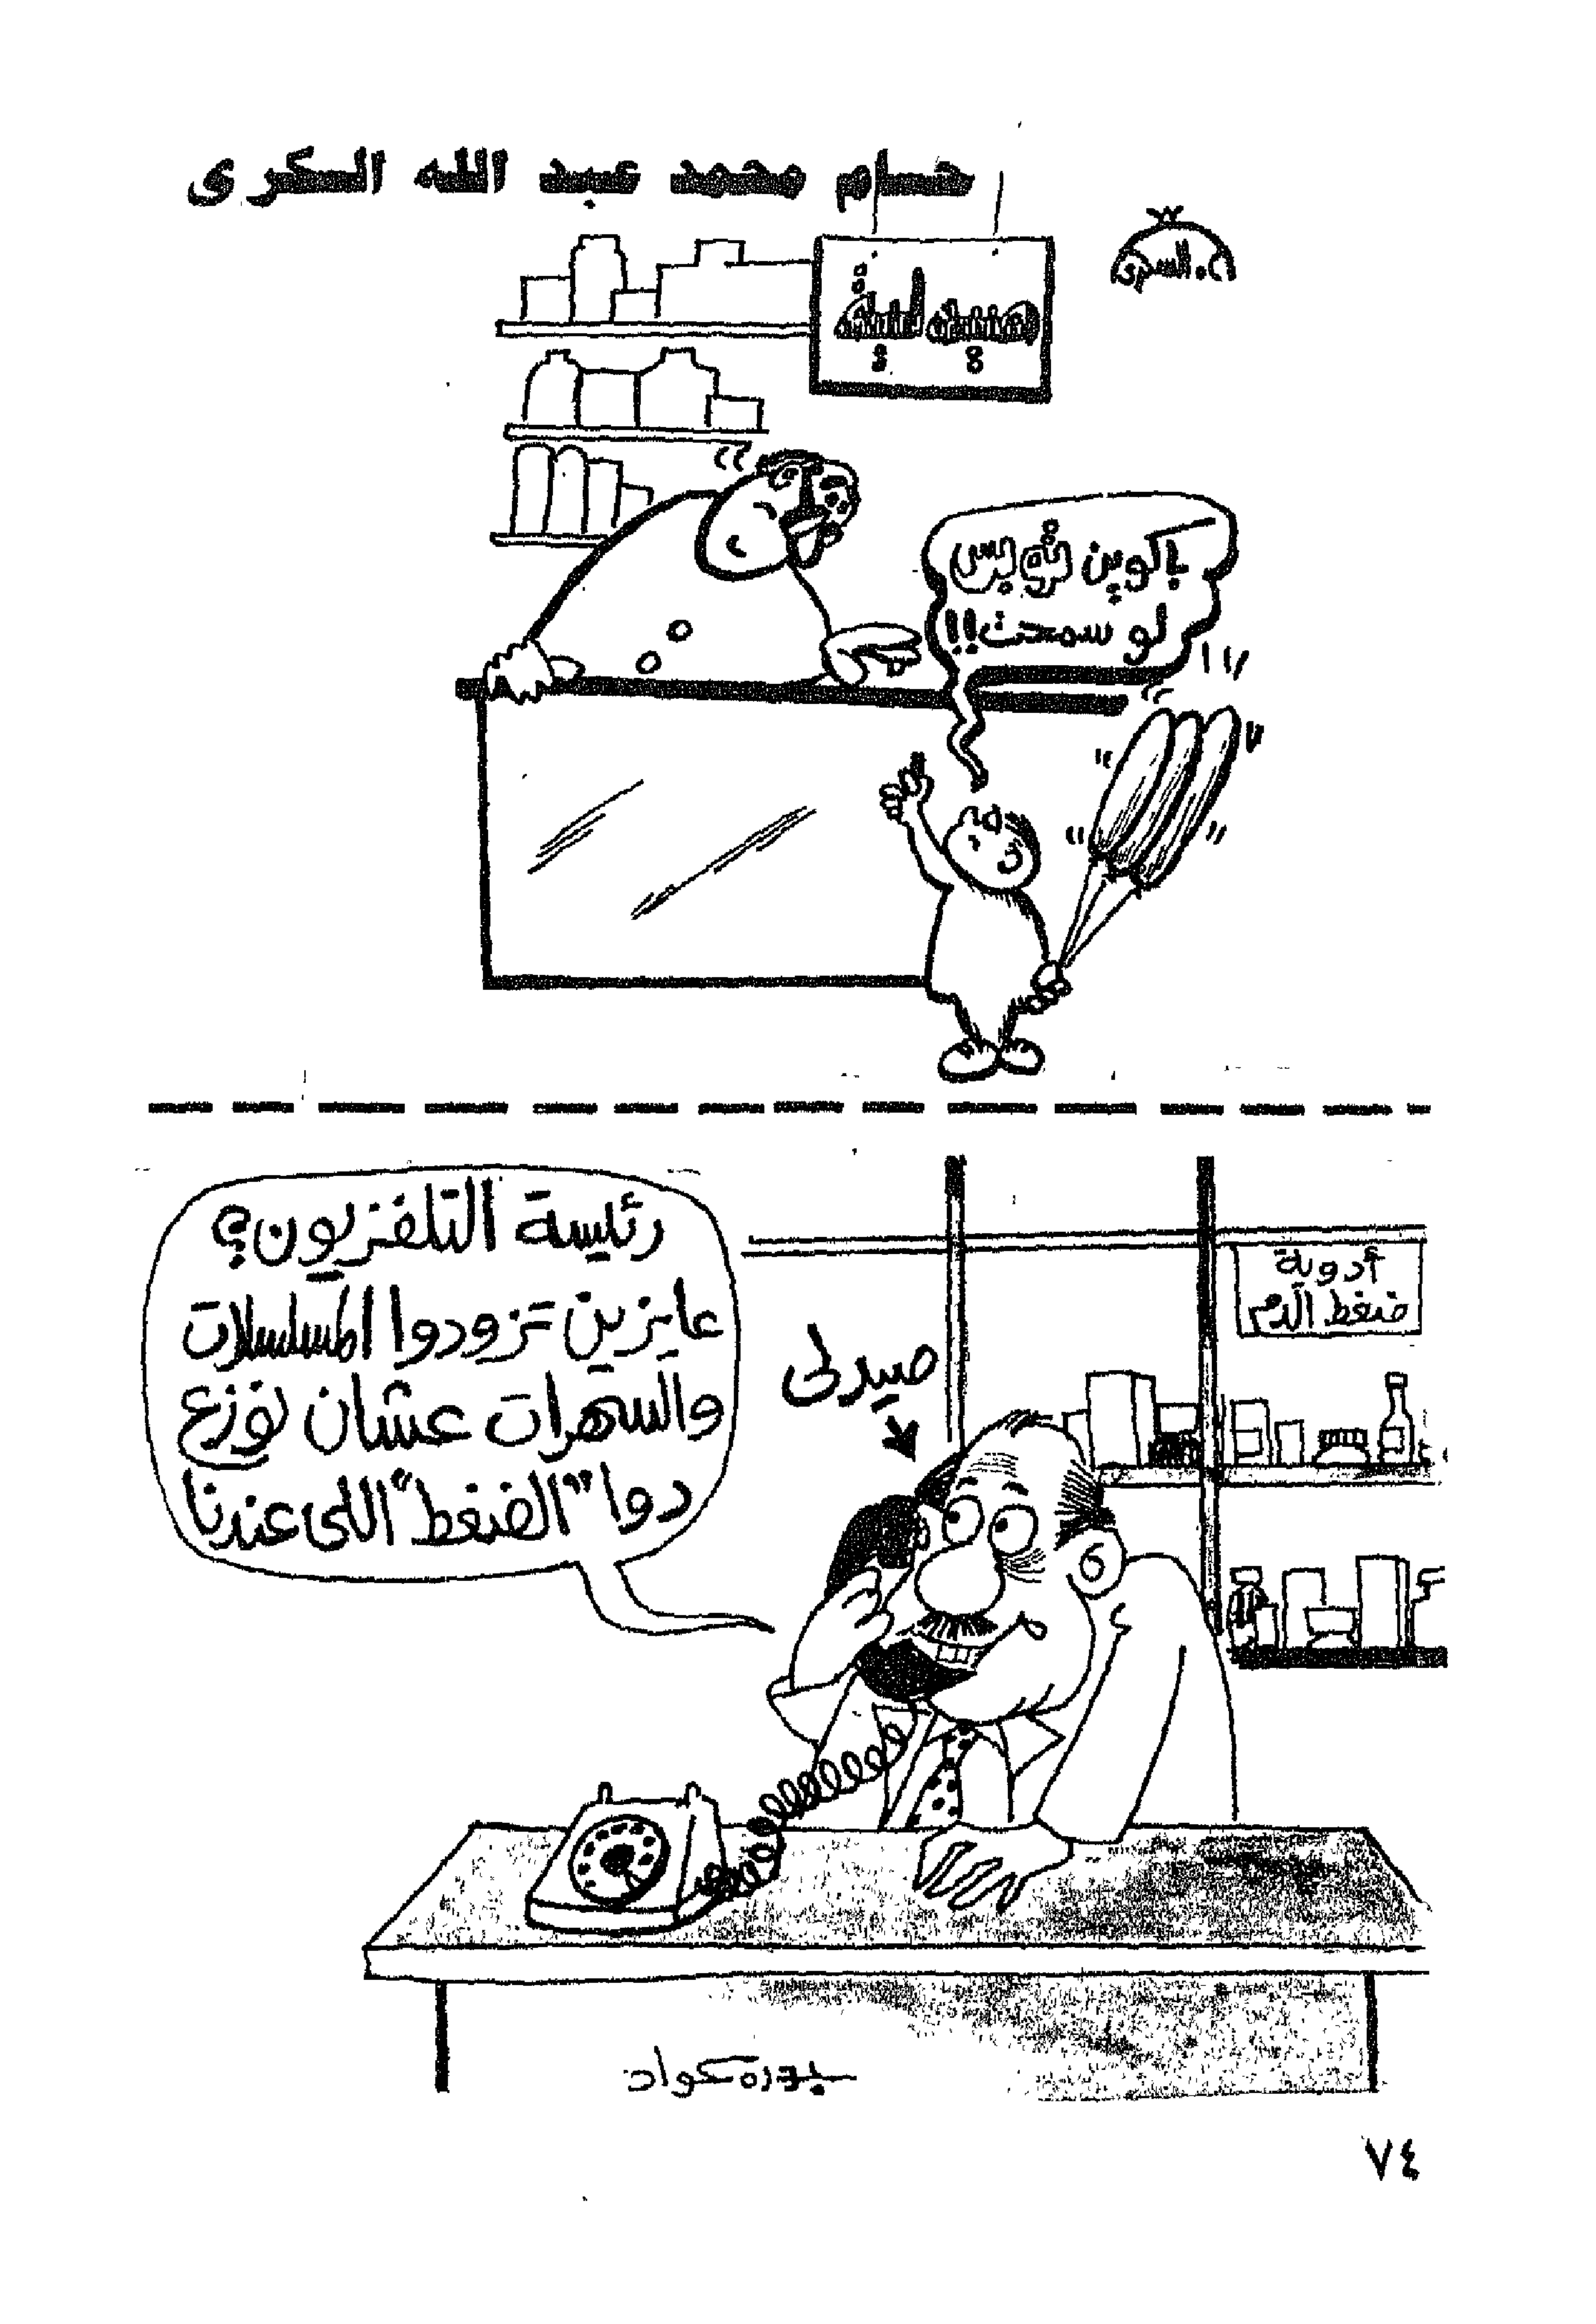 حسام محمد عبد الله السكرى
السكرى
باكوين
لو سمحت!!
رئيسة التلفزيون؟
عايزين تزودوا المسلسلات
والسهرات عشان نوزع
دوا "الضغط" اللى عندنا
صيدلى
أدوية
ضغط الدم
٧٤